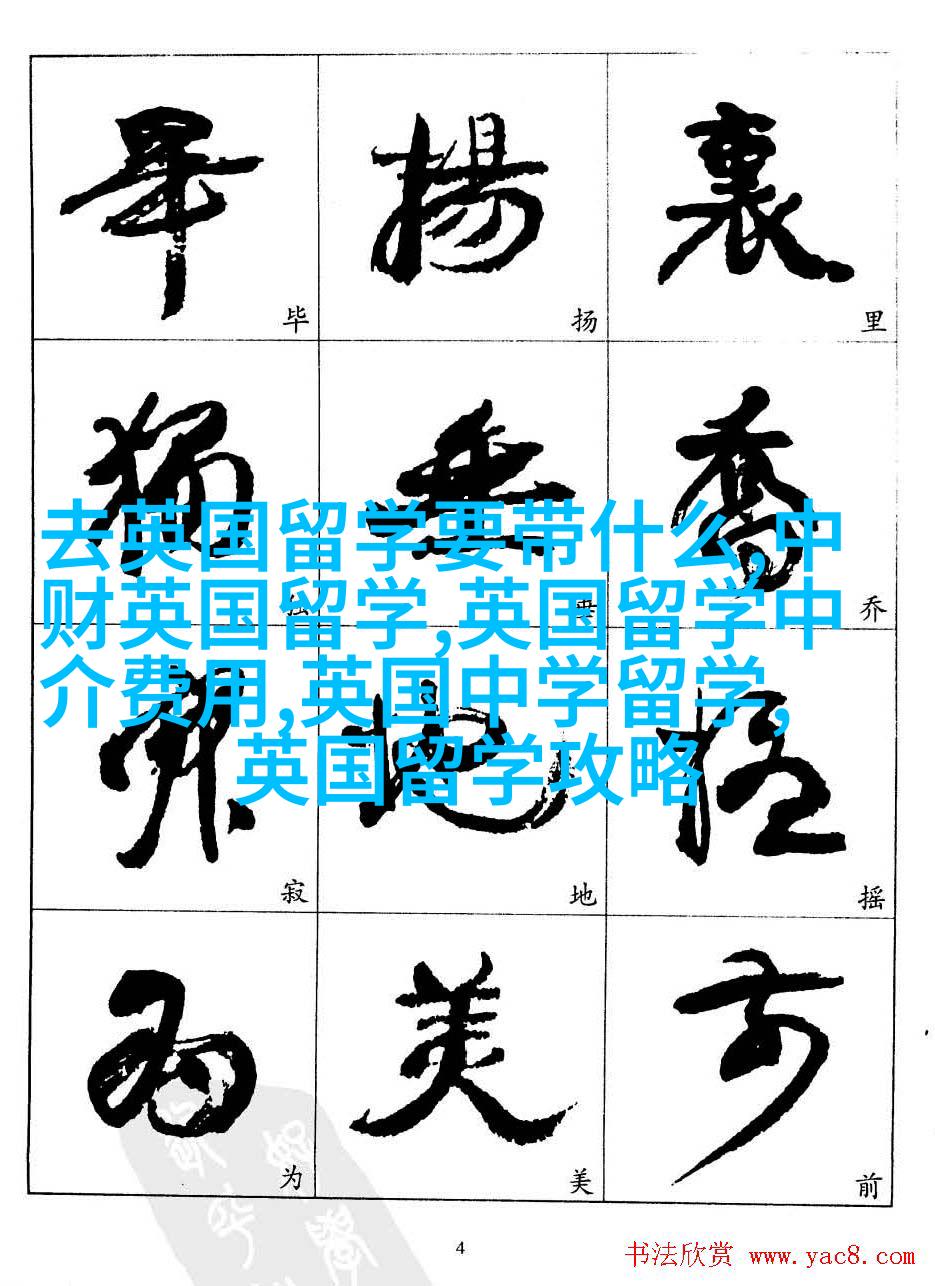 畢 揚 裏
毕 扬 里
獨 垂 喬
乔
去英国留学要带什么,中
财英国留学,英国留学中
介费用,英国中学留学,
英国留学攻略
地 摇
寂 地 摇
为 美 前
为 美 前
4
书法欣赏 www.yac8.com